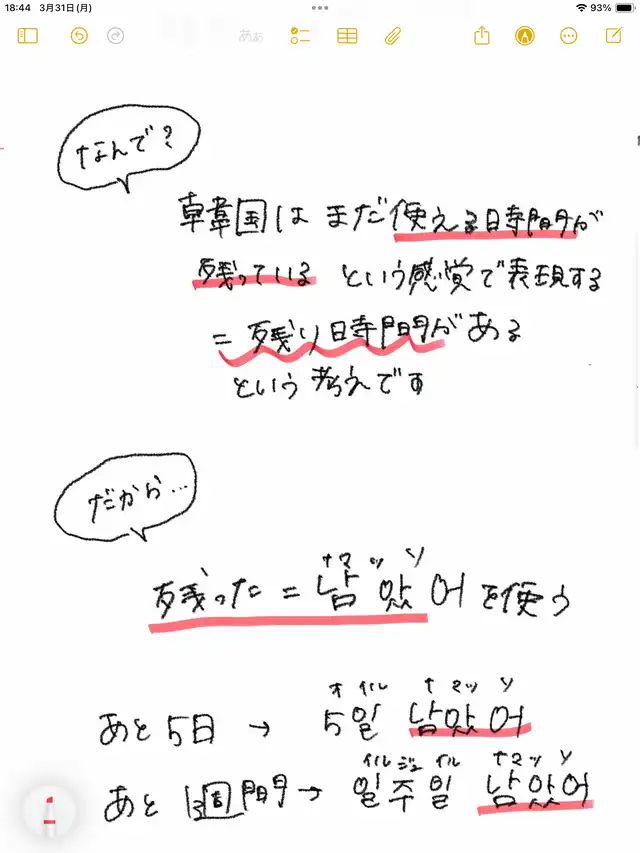 18:44 3月31日(月) 93%
あぁ
なんで?
韓国は まだ使える時間が
残っている という感覚で表現する
= 残り時間がある
という考えです
だから…
ナマッソ
残った = 남았어を使う
オイル ナマッソ
あと5日 → 5일 남았어
イルジュイル ナマッソ
あと1週間 → 일주일 남았어